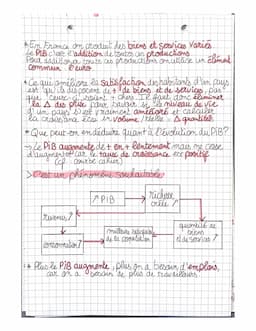 * En France on produit des biens et services variés.
Le PIB c'est l'addition de toutes ces productions.
Pour additionner toutes ces productions on utilise un élément
commun : l'euro.
* Ce qui améliore la satisfaction des habitants d'un pays
est qu'ils disposent de + de biens et de services, pas
que ceux-ci soient + chers. Il faut donc éliminer
la Δ des prix pour savoir si le niveau de vie
d'un pays s'est vraiment amélioré et calculer
la croissance éco en volume / réelle = Δ quantités
* Que peut-on en déduire quant à l'évolution du PIB?
→ Le PIB augmente de + en + lentement mais ne cesse
d'augmenter car le taux de croissance est positif
(cf. courbe cahier)
> C'est un phénomène souhaitable :
↗ PIB
richesse
créée ↗
revenus ↗
quantité de
biens
et de services ↗
consommation ↗
meilleure satisfaction
de la population
* Plus le PIB augmente, plus on a besoin d'emplois,
car on a besoin de plus de travailleurs.